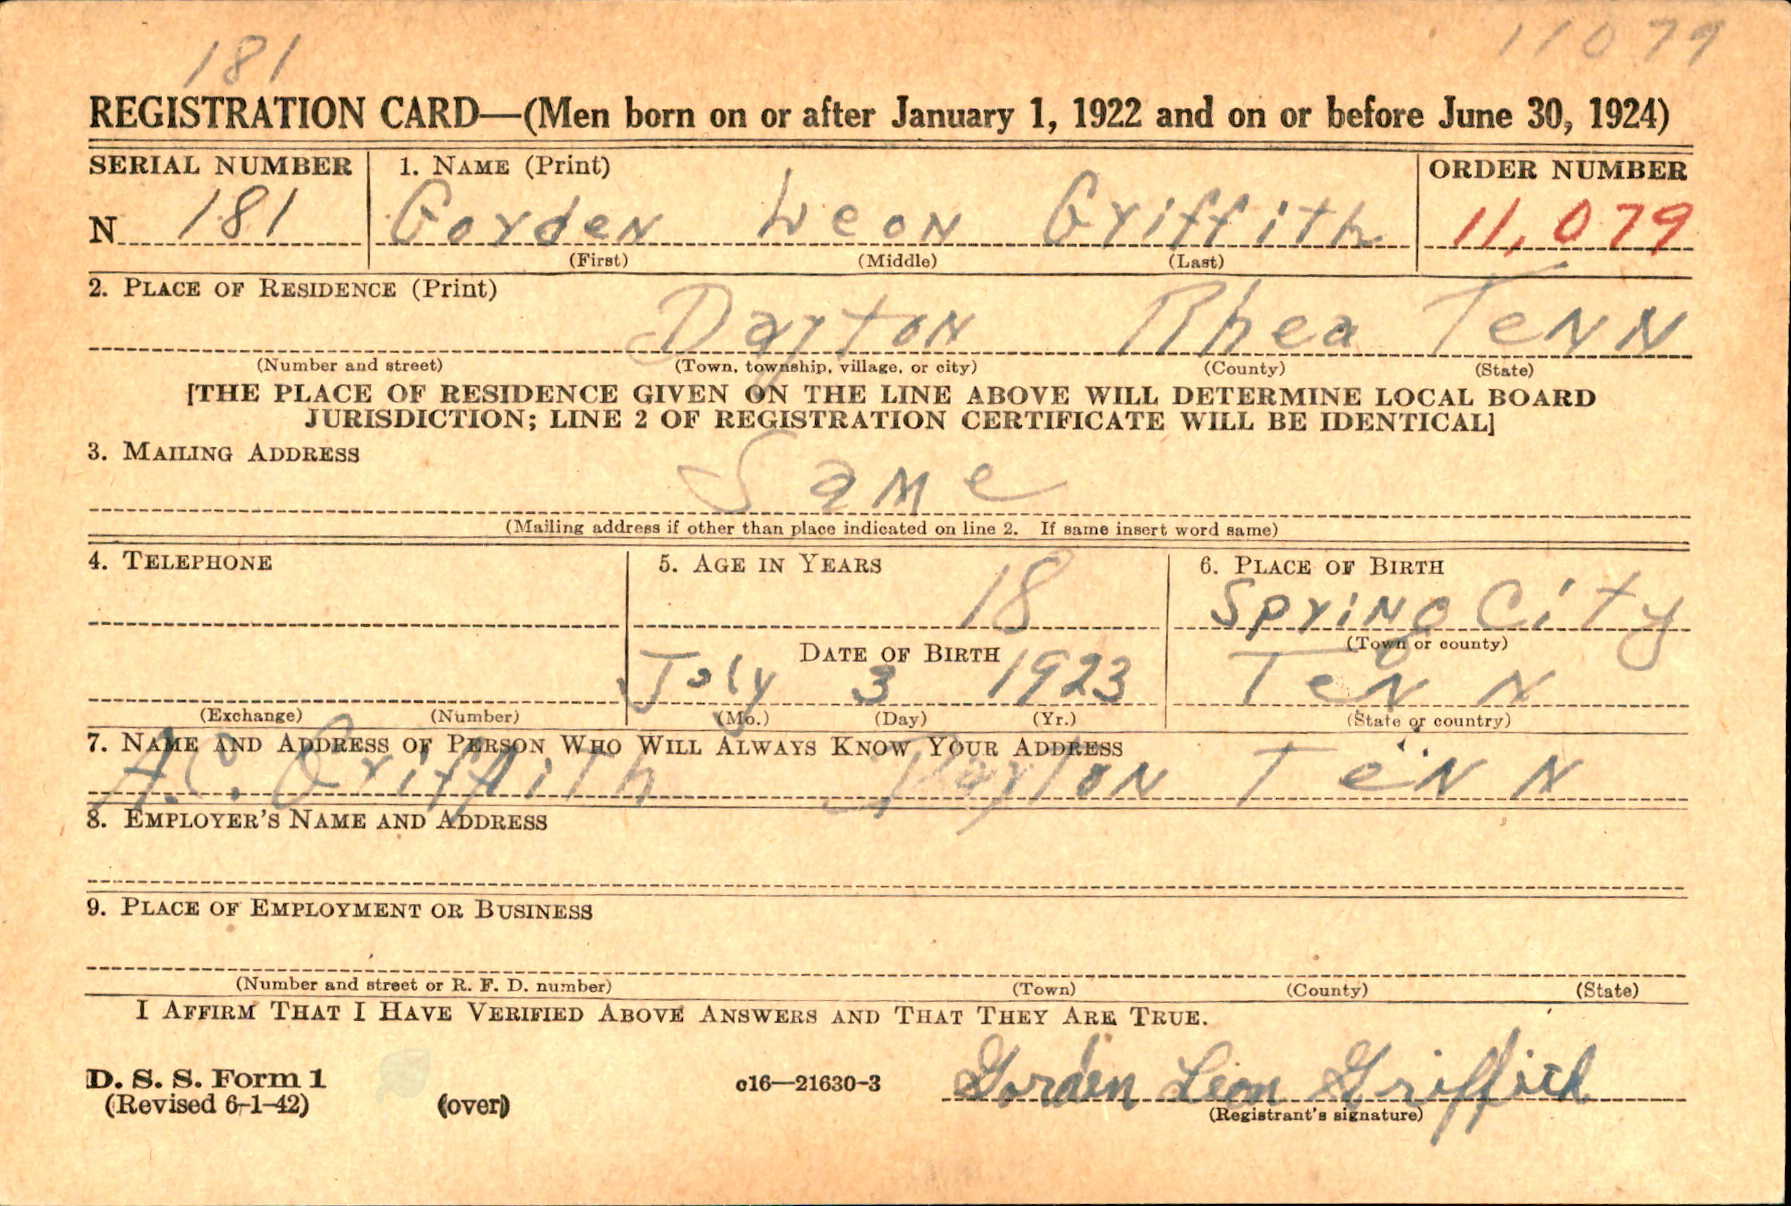 181 11079
REGISTRATION CARD—(Men born on or after January 1, 1922 and on or before June 30, 1924)
SERIAL NUMBER 1. NAME (Print) ORDER NUMBER
N 181 Gorden Leon Griffith 11,079
(First) (Middle) (Last)
2. PLACE OF RESIDENCE (Print)
Dayton Rhea Tenn
(Number and street) (Town, township, village, or city) (County) (State)
[THE PLACE OF RESIDENCE GIVEN ON THE LINE ABOVE WILL DETERMINE LOCAL BOARD
JURISDICTION; LINE 2 OF REGISTRATION CERTIFICATE WILL BE IDENTICAL]
3. MAILING ADDRESS
Same
(Mailing address if other than place indicated on line 2. If same insert word same)
4. TELEPHONE 5. AGE IN YEARS 6. PLACE OF BIRTH
18 Spring City
(Town or county)
DATE OF BIRTH
July 3 1923 Tenn
(Exchange) (Number) (Mo.) (Day) (Yr.) (State or country)
7. NAME AND ADDRESS OF PERSON WHO WILL ALWAYS KNOW YOUR ADDRESS
A.C. Griffith Dayton Tenn
8. EMPLOYER'S NAME AND ADDRESS
9. PLACE OF EMPLOYMENT OR BUSINESS
(Number and street or R. F. D. number) (Town) (County) (State)
I AFFIRM THAT I HAVE VERIFIED ABOVE ANSWERS AND THAT THEY ARE TRUE.
D. S. S. Form 1 c16—21630-3 Gorden Leon Griffith
(Revised 6-1-42) (over) (Registrant's signature)